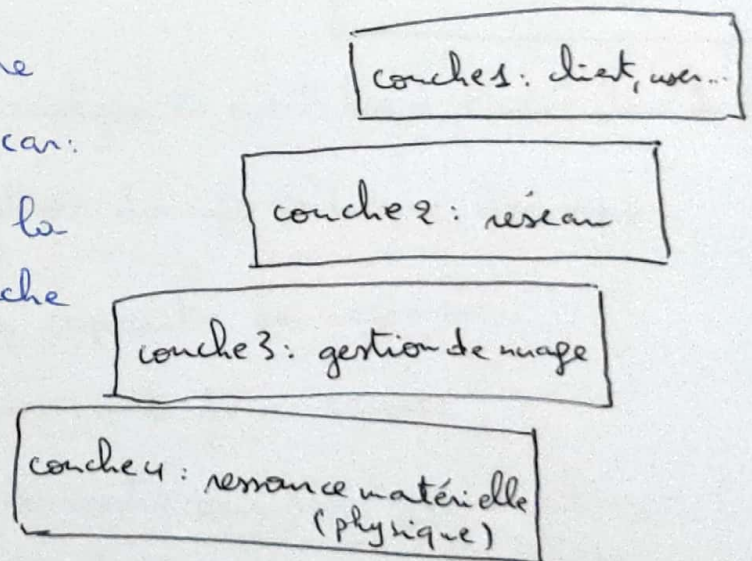 couche1: client, user...
car:
couche2: réseau
la
couche3: gestion de nuage
couche4: ressource matérielle
(physique)